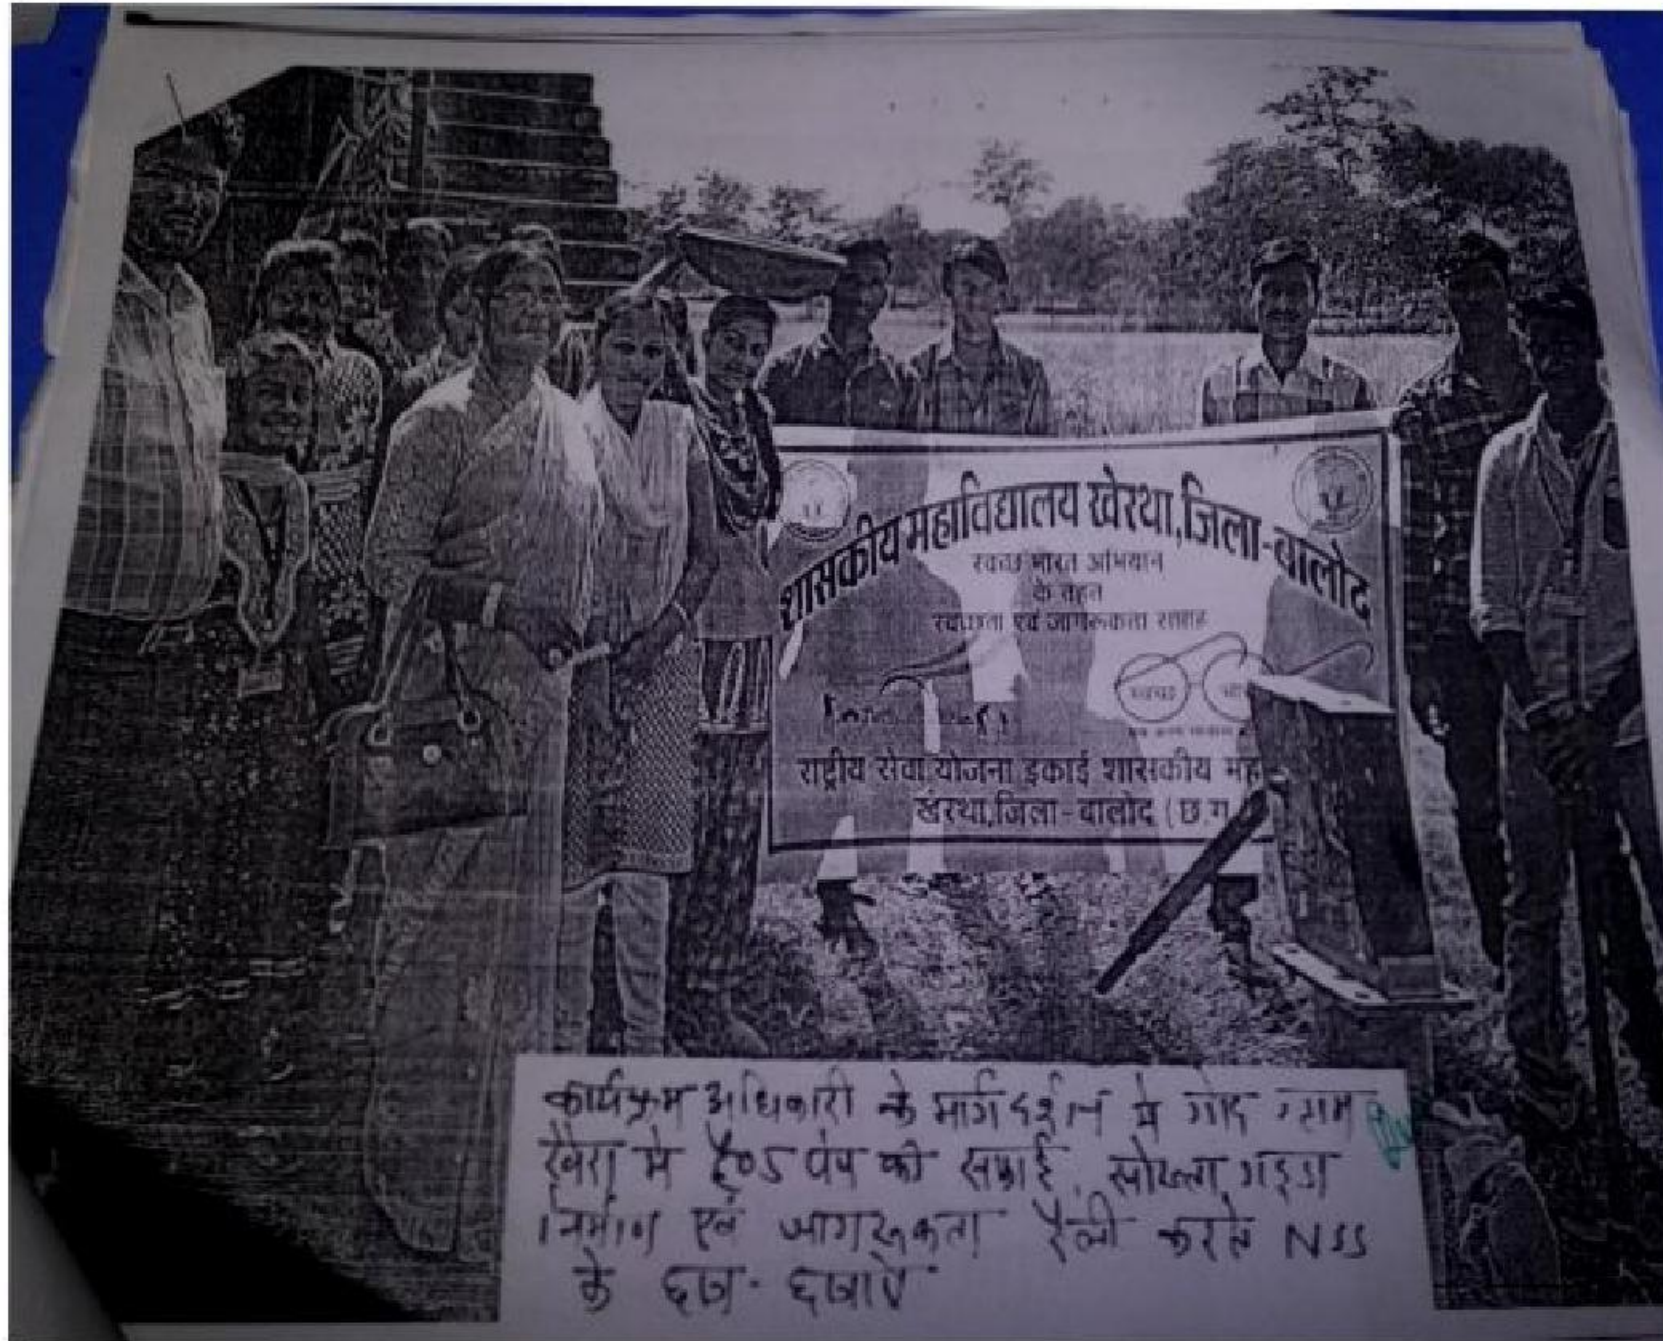 शासकीय महाविद्यालय खेरथा,जिला-बालोद
स्वच्छ भारत अभियान
के तहत
स्वच्छता एवं जागरूकता सप्ताह
स्वच्छ
राष्ट्रीय सेवा योजना इकाई शासकीय मह
खेरथा,जिला-बालोद (छ.ग
कार्यक्रम अधिकारी के मार्गदर्शन मे गोद ग्राम
खैरा मे हैण्ड पंप की सफाई, सोख्ता गड्डा
निर्माण एवं जागरूकता रैली करते NSS
के छात्र-छात्राएं